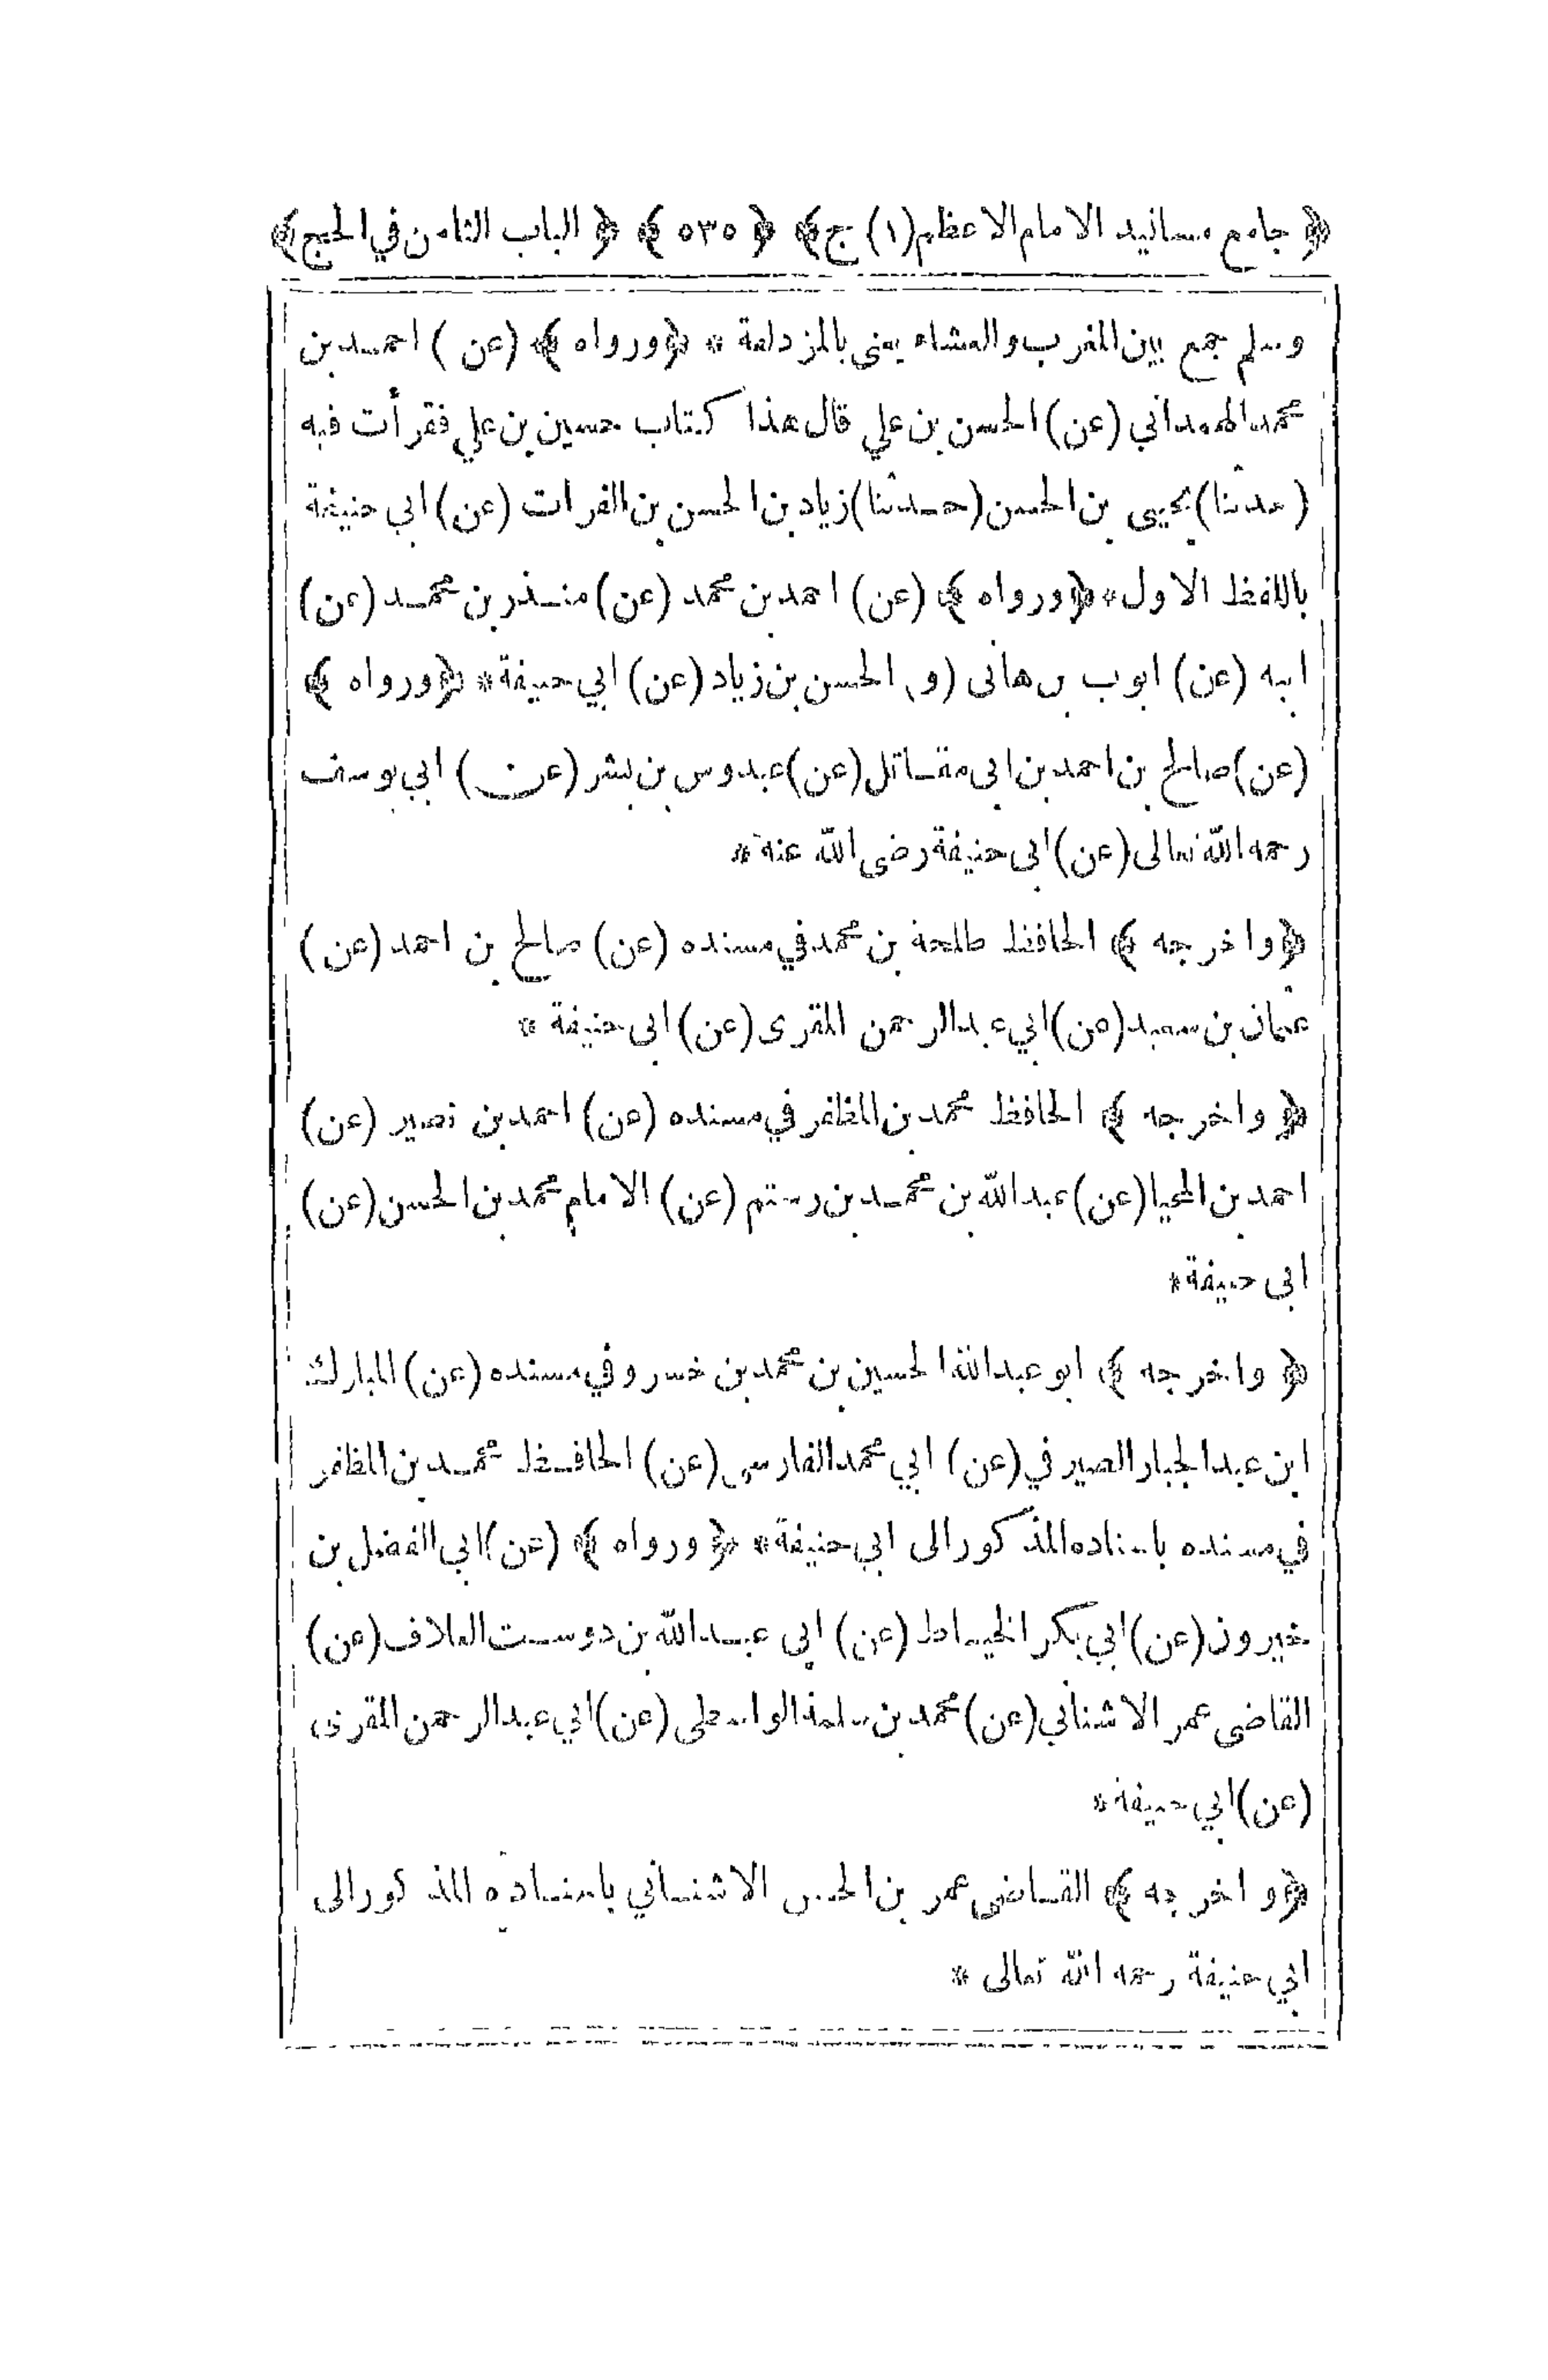 ﴿ جامع مسانيد الامام الاعظم (١) ج﴾ ﴿ ٥٣٥ ﴾ ﴿ الباب الثامن في الحج﴾
وسلم جمع بين المغرب والعشاء يعنى بالمزدلفة * ﴿ورواه ﴾ (عن ) احمد بن
محمد الهمداني (عن) الحسن بن علي قال هذا كتاب حسين بن علي فقرأت فيه
(حدثنا) يحيى بن الحسن (حدثنا) زياد بن الحسن بن الفرات (عن) ابي حنيفة
باللفظ الاول * ﴿ورواه ﴾ (عن) احمد بن محمد (عن) منذر بن محمد (عن)
ابيه (عن) ايوب بن هانى (و) الحسن بن زياد (عن) ابي حنيفة * ﴿ورواه ﴾
(عن) صالح بن احمد بن ابى مقاتل (عن) عبدوس بن بشر (عن) ابي يوسف
رحمه الله تعالى (عن) ابى حنيفة رضى الله عنه *
﴿واخرجه ﴾ الحافظ طلحة بن محمد في مسنده (عن) صالح بن احمد (عن)
عثمان بن سعيد (عن) ابي عبد الرحمن المقرى (عن) ابى حنيفة *
﴿ واخرجه ﴾ الحافظ محمد بن المظفر في مسنده (عن) احمد بن نصير (عن)
احمد بن المحيا (عن) عبد الله بن محمد بن رستم (عن) الامام محمد بن الحسن (عن)
ابى حنيفة *
﴿ واخرجه ﴾ ابو عبد الله الحسين بن محمد بن خسرو في مسنده (عن) المبارك
ابن عبد الجبار الصيرفي (عن) ابي محمد الفارسي (عن) الحافظ محمد بن المظفر
في مسنده باسناده المذكور الى ابي حنيفة * ﴿ ورواه ﴾ (عن) ابي الفضل بن
خيرون (عن) ابي بكر الخياط (عن) ابي عبد الله بن دوست العلاف (عن)
القاضى عمر الاشناني (عن) محمد بن سلمة الواسطى (عن) ابي عبد الرحمن المقرى
(عن) ابي حنيفة *
﴿و اخرجه ﴾ القاضى عمر بن الحسن الاشناني باسناده المذكور الى
ابي حنيفة رحمه الله تعالى *